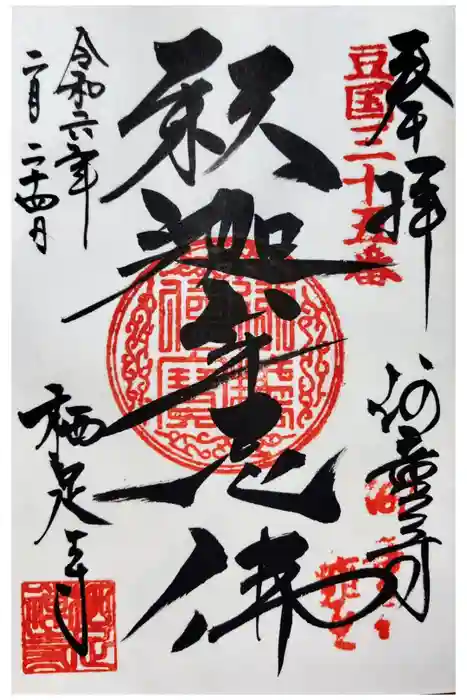 奉拝
豆国三十五番
河童寺
釈迦牟尼佛
令和六年
二月二十四日
栖足寺